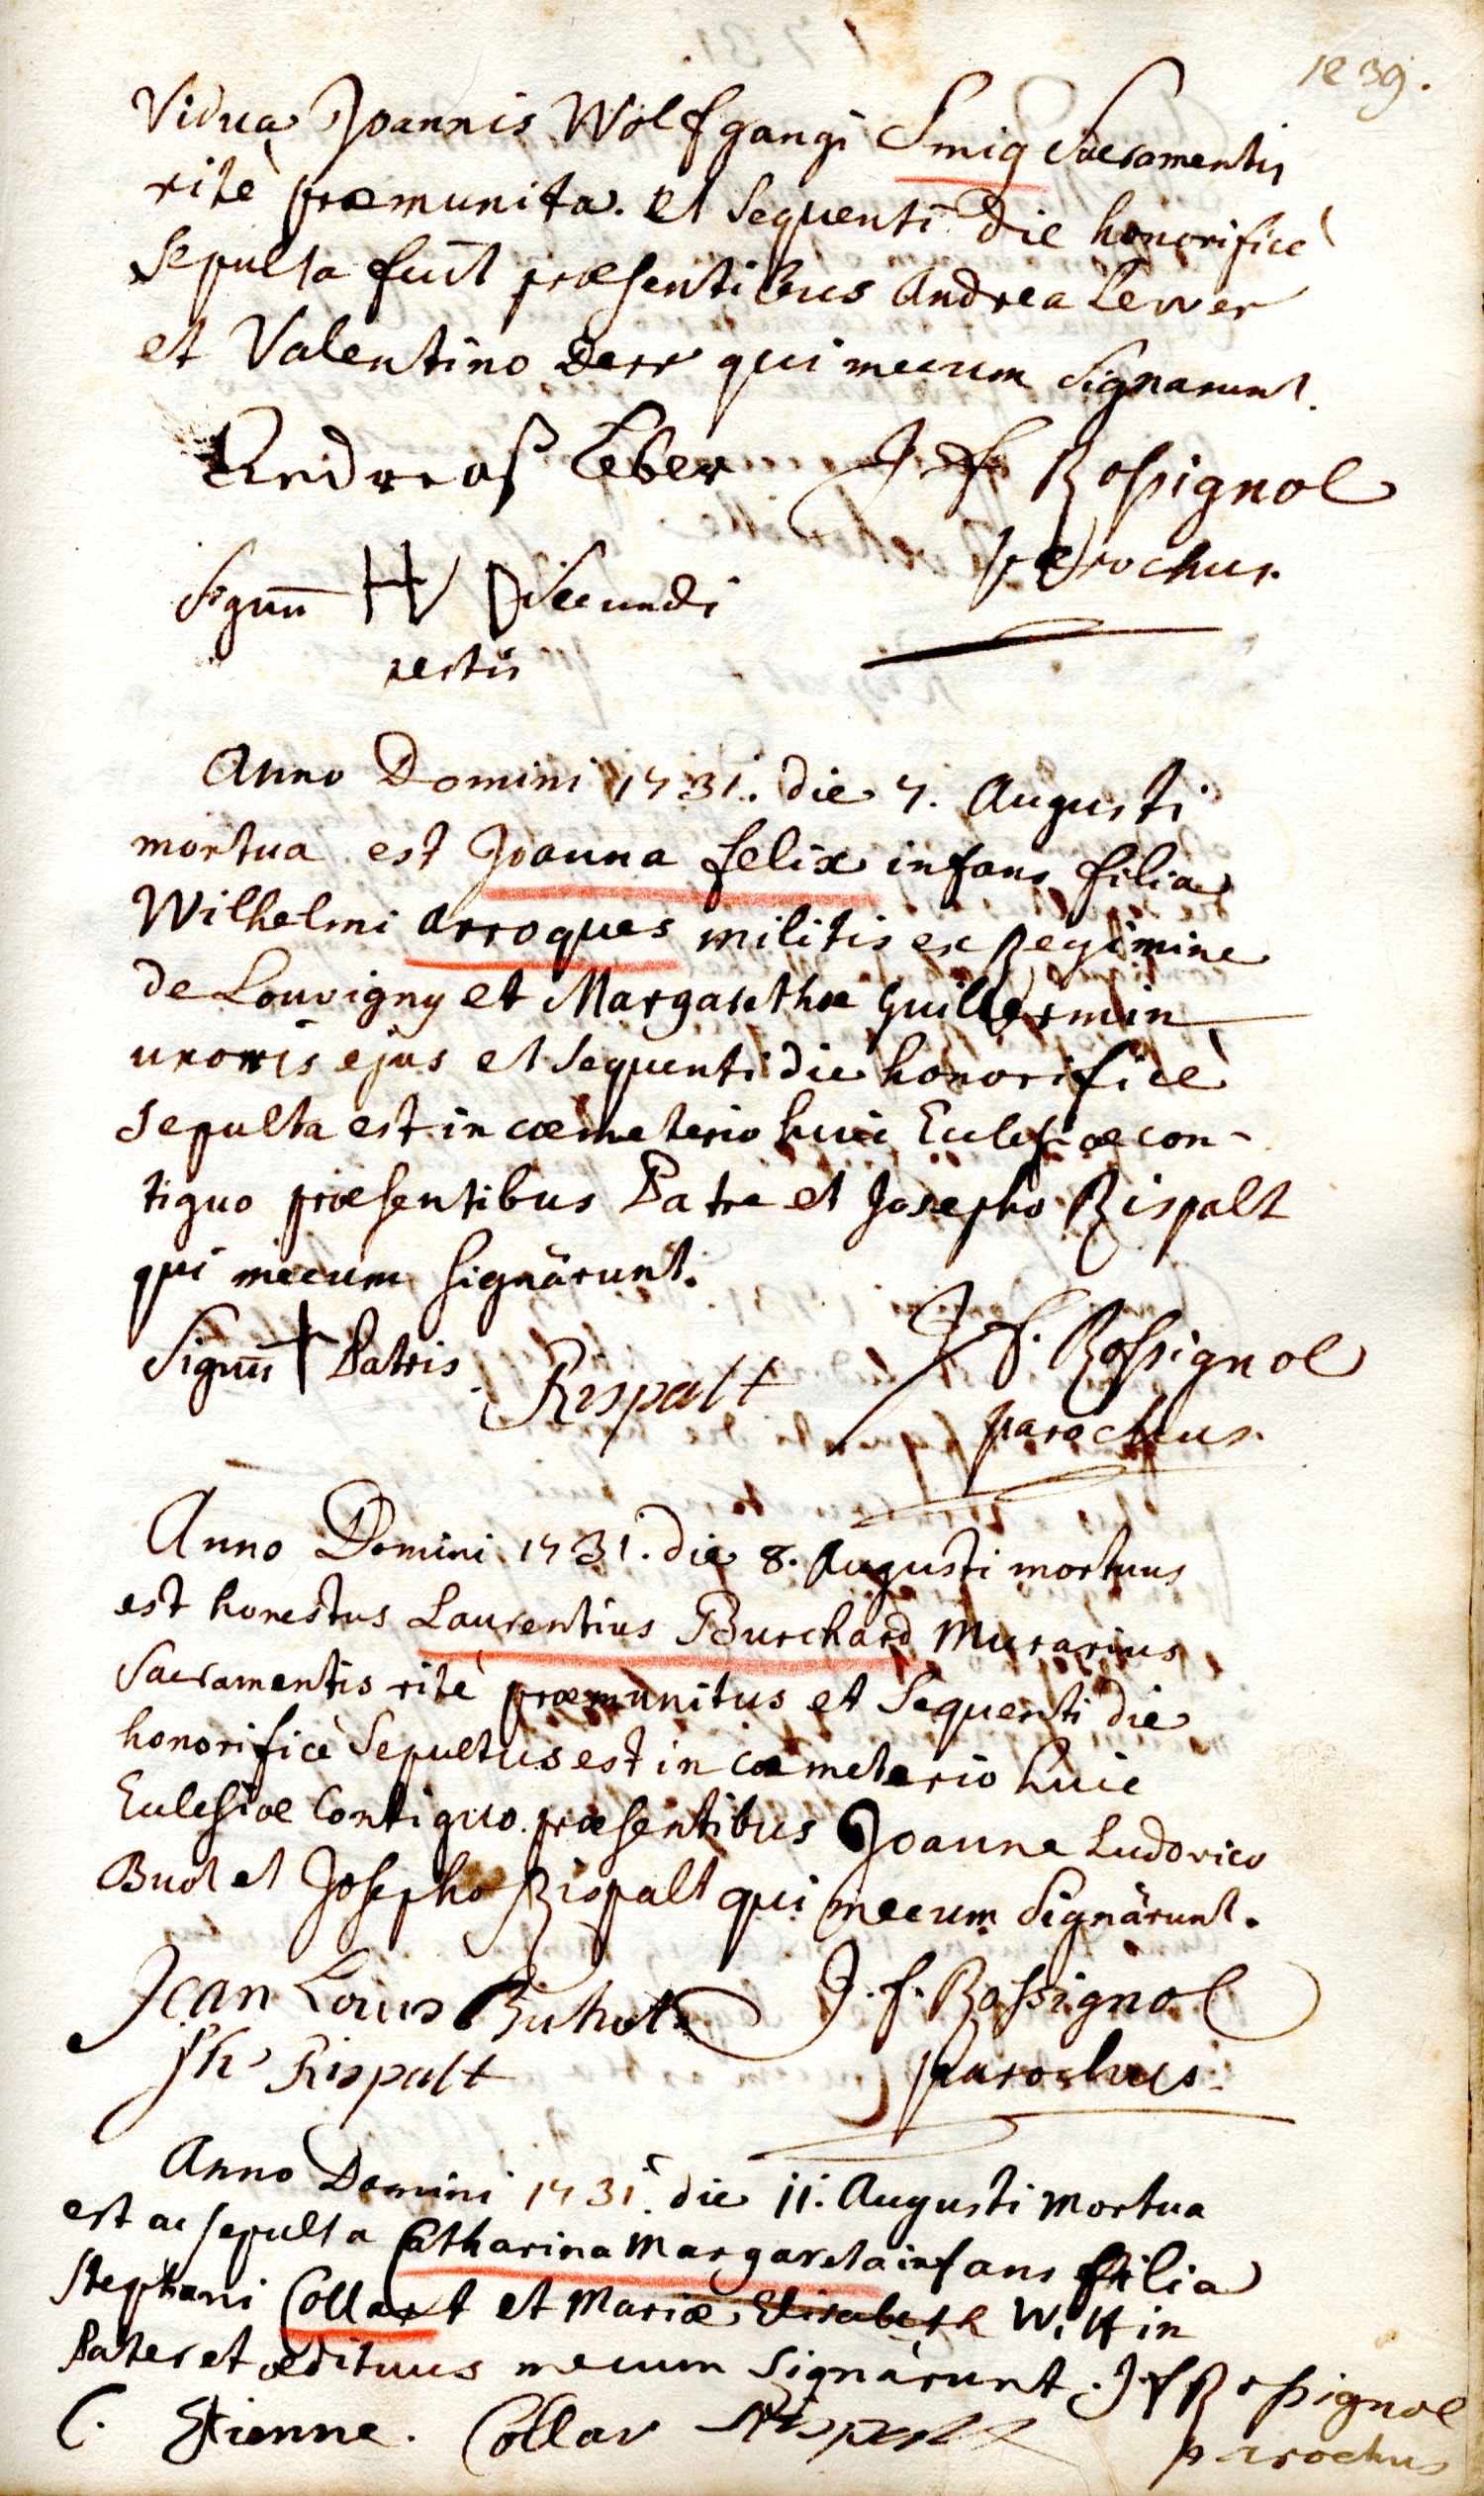 1e 39.
Vidua Joannis Wolfgangi Smig Sacramentis
ritè præmunita. et sequenti die honorificè
sepulta fuit præsentibus Andrea Lewer
et Valentino Derr qui mecum signarunt.
Andreas Leber J F Rossignol
parochus.
Signū H D secundi
testis
Anno Domini 1731. die 7. Augusti
mortua est Joanna felix infans filia
Wilhelmi arroques militis ex Regimine
de Louvigny et Margarethæ Guillermin
uxoris ejus et sequenti die honorificè
sepulta est in cœmeterio huic Eclesiæ con-
tiguo præsentibus Patre et Josepho Rispalt
qui mecum signārunt.
Signū † Patris Rispalt J F. Rossignol
parochus.
Anno Domini 1731. die 8. Augusti mortuus
est honestus Laurentius Burchard Murarius
Sacramentis ritè præmunitus et sequenti die
honorificè sepultus est in cœmeterio huic
Eclesiæ contiguo. præsentibus Joanne Ludovico
et Josepho Rispalt qui mecum signārunt.
Jean Louis Buhot J. f. Rossignol
Jh Rispalt parochus.
Anno Domini 1731. die 11. Augusti mortua
est ac sepulta Catharina Margareta infans filia
Stephani Collart et Mariæ Elisabeth
Pater et ædituus mecum signàrunt. J f Rossignol
C. Etienne. Collar Rispalt parochus